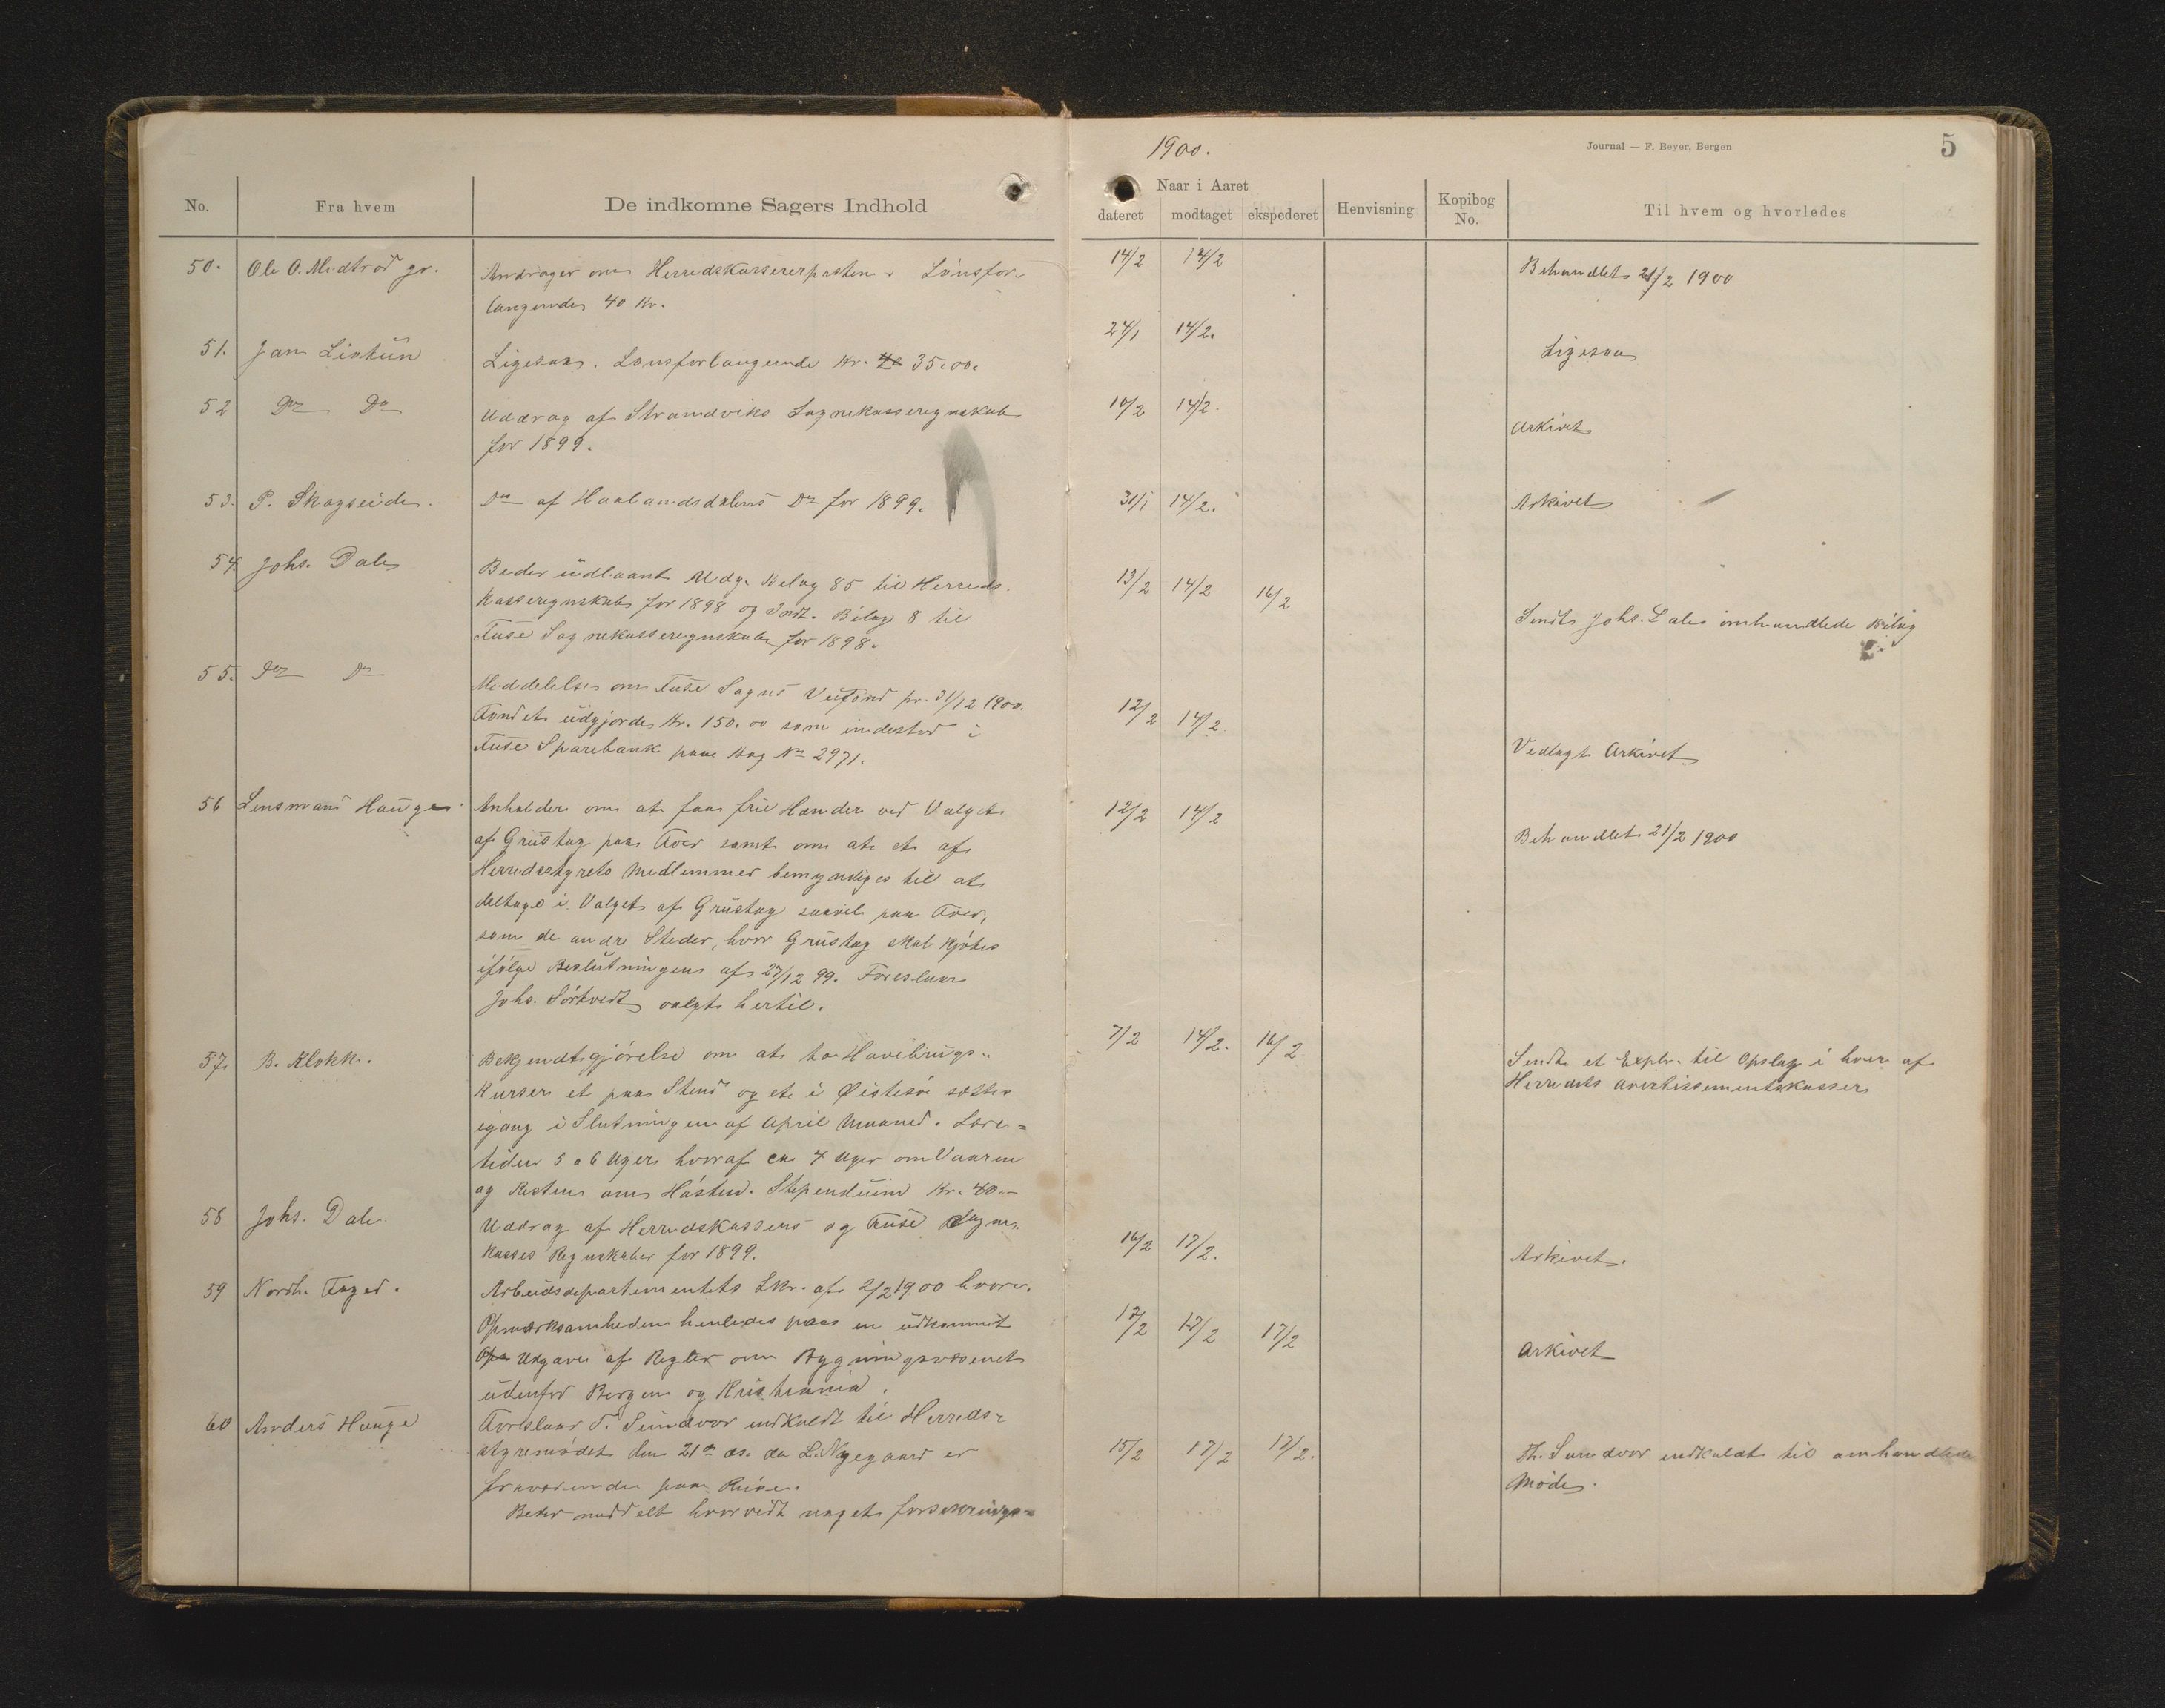 1900.
Journal — F. Beyer, Bergen
5
No.
Fra hvem
De indkomne Sagers Indhold
Naar i Aaret
dateret
modtaget
ekspederet
Henvisning
Kopibog No.
Til hvem og hvorledes
50. Ole O. Midtrød gr. Andrager om Herredskassererposten. Lønsfor- 14/2 14/2 Behandlet 21/2 1900
langende 40 Kr.
51. Jam Liohün Ligesaa. Lønsforlangende Kr. 35.00. 24/1 14/2. Ligesaa
52 Do Do Uddrag af Strandviks Sognekasseregnskab 10/2 14/2. Arkivet
for 1899.
53. P. Skogseide. Do af Haalandsdalens Do for 1899. 31/1 14/2. Arkivet
54. Johs. Dale Beder udlaant Udg. Bilag 85 til Herreds- 13/2 14/2 16/2
Kasseregnskab for 1898 og Indt. Bilag 8 til Sendt Johs. Dale omhandlede Bilag
Fuse Sognekasseregnskab for 1898.
55. Do Do Meddelelse om Fuse Sogns Veifond pr. 31/12 1900. 12/2 14/2
Fondet udgjorde Kr. 150.00 som indestod i
Fuse Sparebank paa Bog No 2971. Vedlagt Arkivet
56 Lensmand Hauge Anholder om at faa frie Hænder ved Valget 12/2 14/2 Behandlet 21/2 1900
af Grustag paa samt om at et af
Herredsstyrets Medlemmer bemyndiges til at
deltage i Valget af Grustag saavel paa
som de andre Steder, hvor Grustag skal kjøbes
ifølge Beslutningen af 27/12 99. Foreslaar
Johs. Sørtvedt valgt hertil.
57. B. Klokk. Bekjendtgjørelse om at to Havebrugs- 7/2 14/2. 16/2 Sendt et Explr. til Opslag i hver af
Kurser et paa Stend og et i Øistesø sættes Herredets Avertissementskasser
igang i Slutningen af April Maaned. Lære-
tiden 5 a 6 Uger hvoraf ca 4 Uger om Vaaren
og Resten om Høsten. Stipendium Kr. 40.-
58 Johs. Dale Uddrag af Herredskassens og Fuse Sogne- 16/2 17/2. Arkivet.
kasses Regnskaber for 1899.
59 Nordh. Foged. Arbeidsdepartementets Skr. af 2/2 1900 hvori 17/2 17/2 Arkivet
Opmærksomheden henledes paa en udkommet
Udgave af Regler om Bygningsvæsenet
udenfor Bergen og Kristiania.
60 Anders Hauge Foreslaar T. Sundvor indkaldt til Herreds- 15/2 17/2 17/2. Th. Sundvor indkaldt til omhandlede
styremødet den 21de ds. da L. Nygaard er Møde.
fraværende paa Reise.
Beder meddelt hvorvidt noget forsikrings-